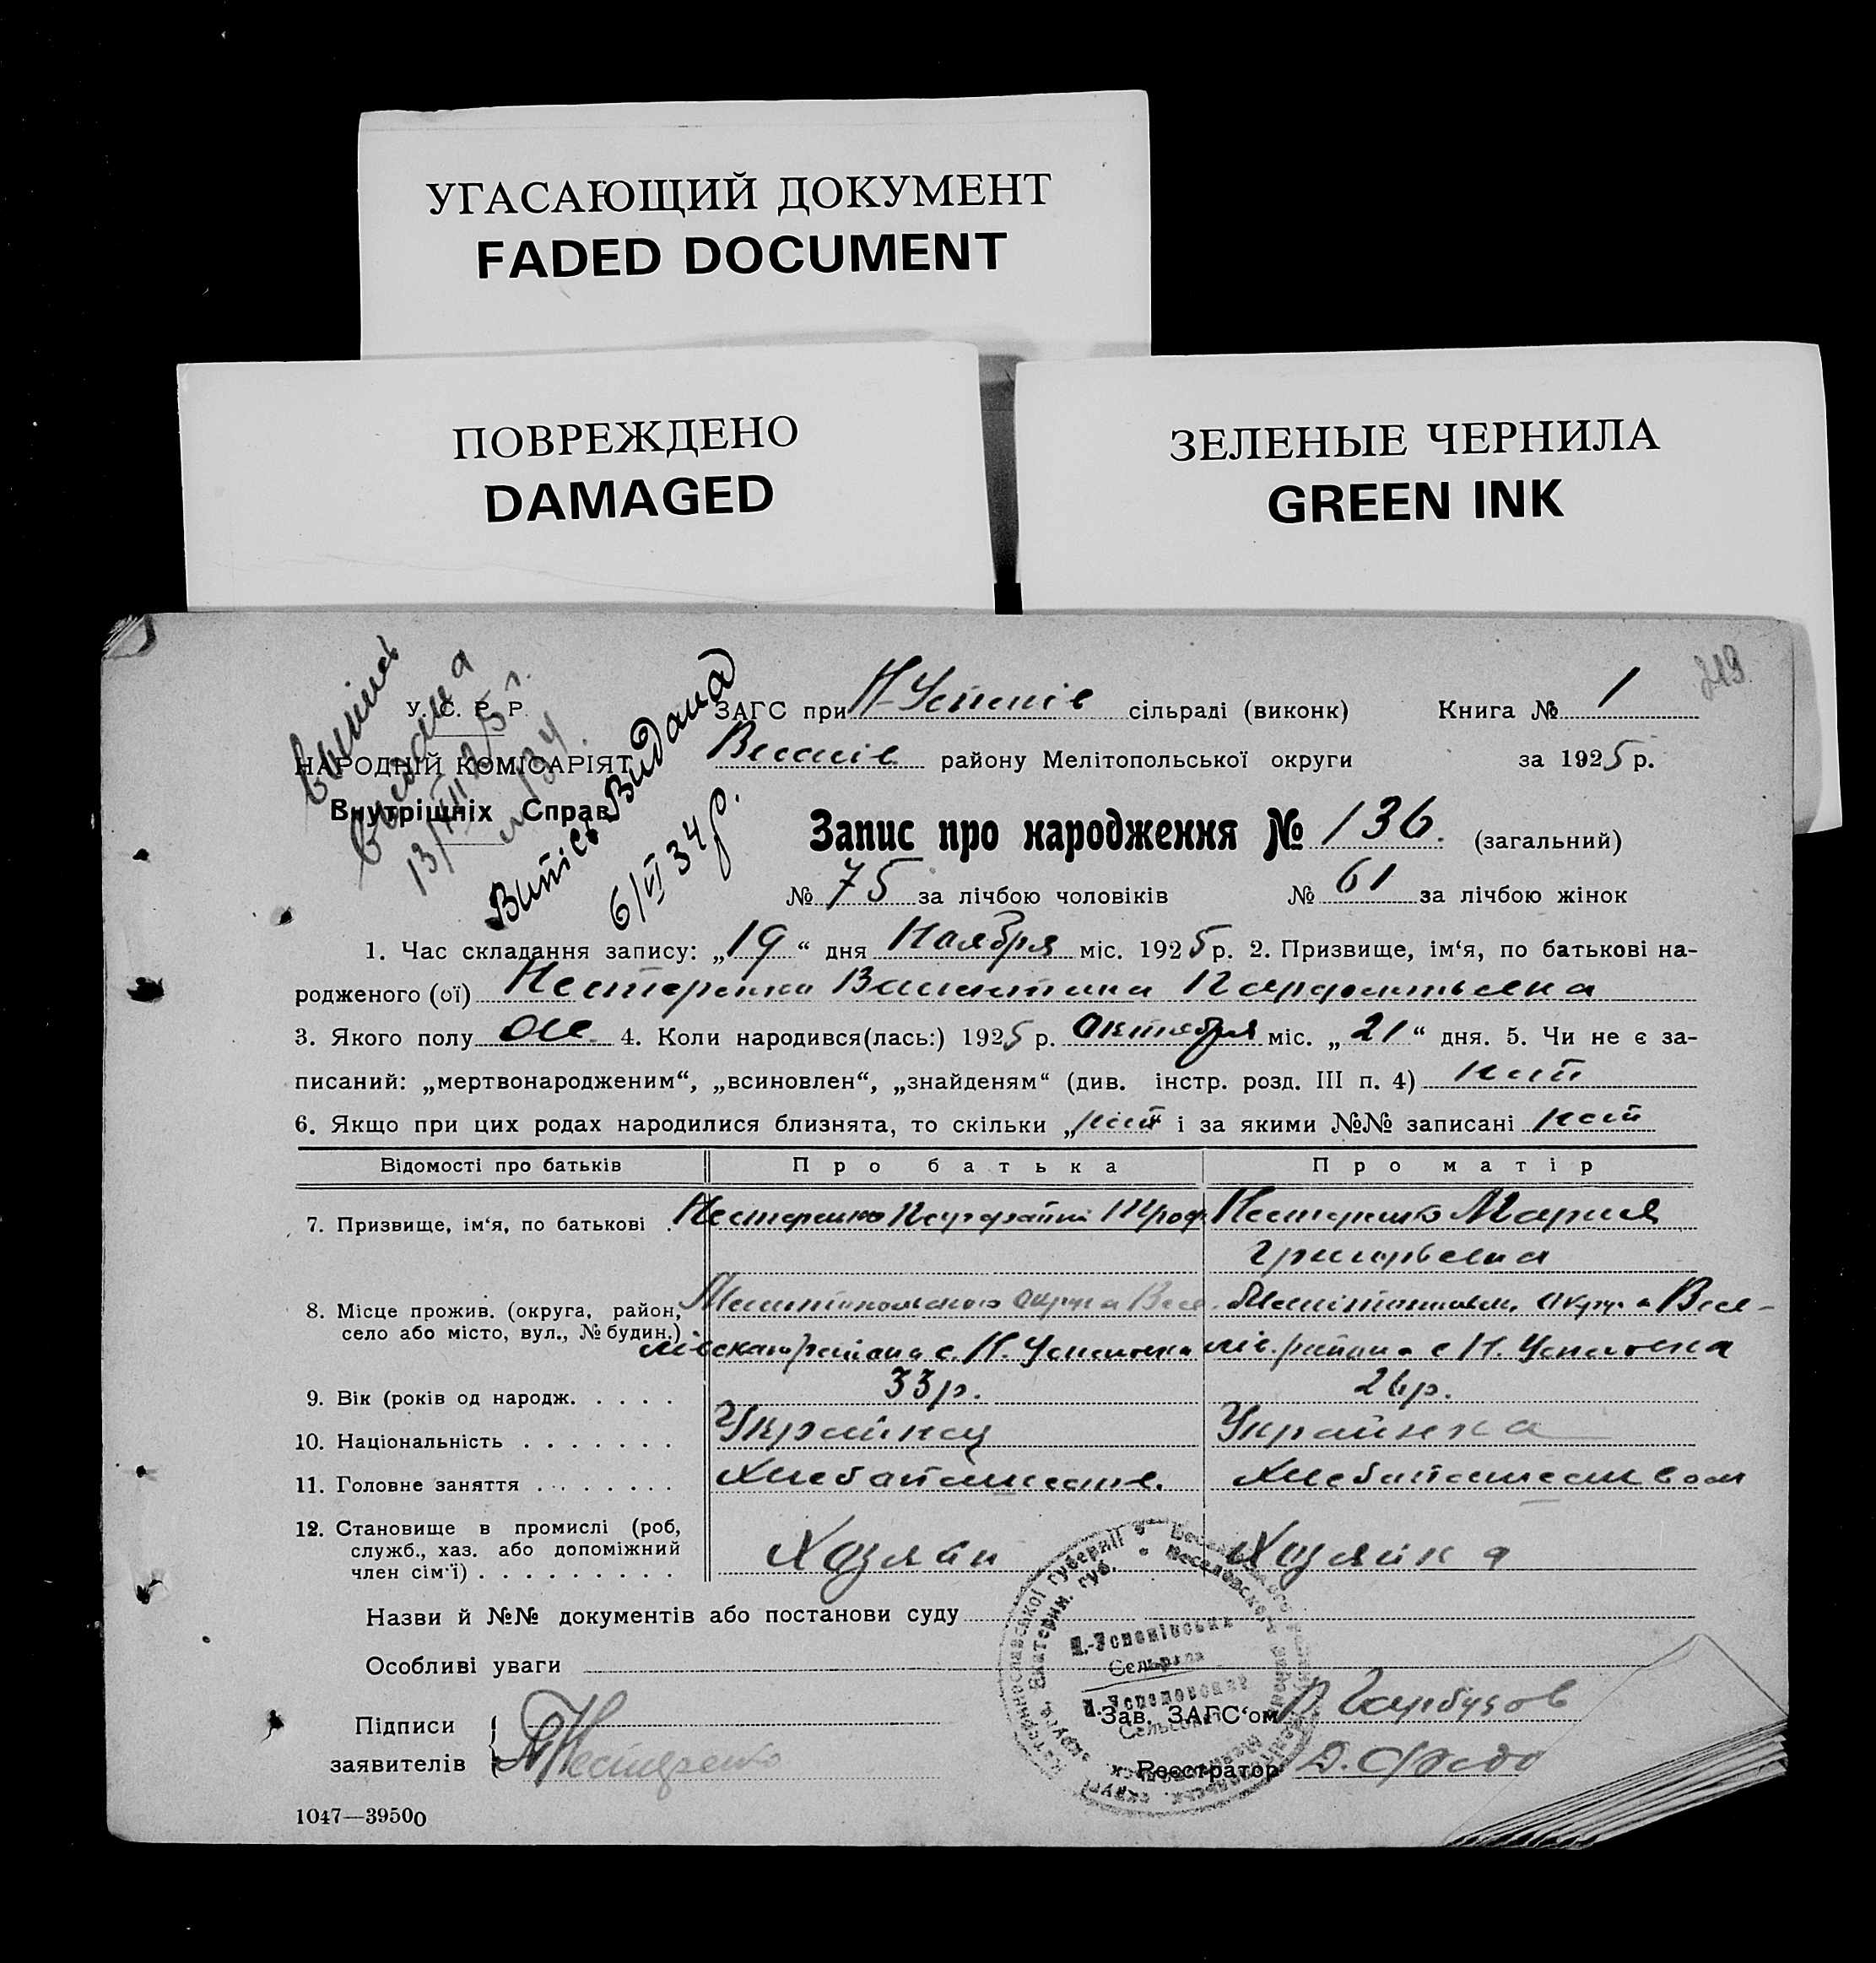 УГАСАЮЩИЙ ДОКУМЕНТ
FADED DOCUMENT
ПОВРЕЖДЕНО
DAMAGED
ЗЕЛЕНЫЕ ЧЕРНИЛА
GREEN INK
219
У. С. Р. Р.
НАРОДНІЙ КОМІСАРІЯТ
Внутрішніх Справ
Випісь Видана
6/VI 34 р.
ЗАГС при Н-Успенів сільраді (виконк) Книга № 1
Веселів району Мелітопольської округи за 1925 р.
Запис про народження № 136. (загальний)
№ 75 за лічбою чоловіків № 61 за лічбою жінок
1. Час складання запису: „19“ дня Ноября міс. 1925 р. 2. Призвище, ім‘я, по батькові на-
родженого (ої) Нестеренко Валентина
3. Якого полу жен. 4. Коли народився(лась:) 1925 р. Октября міс. „21“ дня. 5. Чи не є за-
писаний: „мертвонародженим“, „всиновлен“, „знайденям“ (див. інстр. розд. III п. 4) нет
6. Якщо при цих родах народилися близнята, то скільки „нет“ і за якими №№ записані нет
Відомості про батьків Про батька Про матір
7. Призвище, ім‘я, по батькові Нестеренко Троф. Нестеренко Мария
Григорьевна
8. Місце прожив. (округа, район, село або місто, вул., № будин.) Мелитопольского округа Весе- Мелітопольск. округа Весе-
лівскаго района с. Н. Успеновка лів. района с Н. Успеновка
9. Вік (років од народж. 33 р. 26 р.
10. Національність Українец Українка
11. Головне заняття Хлебопашеств. Хлебопашеством
12. Становище в промислі (роб, служб., хаз. або допоміжний член сім‘ї) Хозяин Хозяйка
Назви й №№ документів або постанови суду
Особливі уваги
Н.-Успенівська
Сельрада
Н.-Успеновский
Сельсовет
Підписи
заявителів Нестеренко
Зав. ЗАГС‘ом Гарбузов
Реєстратор
1047—39500